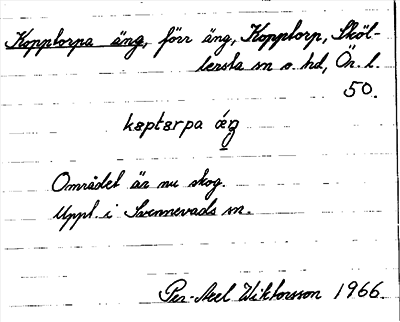 Kopptorpa äng, förr äng, Kopptorp, Sköl-
lersta sn o. hd, Ör. l.
50.
Området är nu skog.
Uppl. i Svennevads sn.
Per-Axel Wiktorsson 1966.